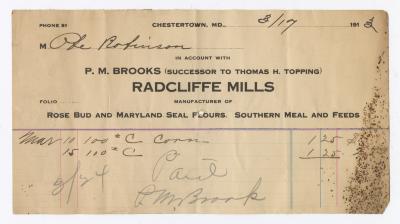 PHONE 81
CHESTERTOWN, MD., 3/17 1913
M Abe Robinson
IN ACCOUNT WITH
P. M. BROOKS (SUCCESSOR TO THOMAS H. TOPPING)
RADCLIFFE MILLS
FOLIO MANUFACTURER OF
ROSE BUD AND MARYLAND SEAL FLOURS. SOUTHERN MEAL AND FEEDS
Mar 10 100# C Corn 1 25
15 100# C 1 25
3/24 Paid
P M Brook